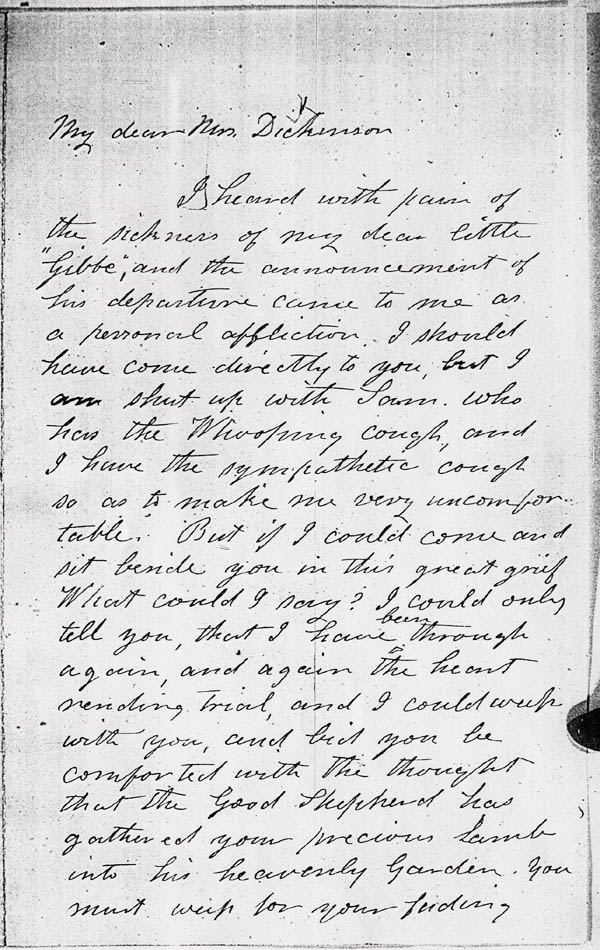 My dear Mrs. Dickenson
I heard with pain of
the sickness of my dear little
"Gibbe", and the announcement of
his departure came to me as
a personal affliction. I should
have come directly to you, but I
am shut up with Sam. who
has the Whooping cough, and
I have the sympathetic cough
so as to make me very uncomfor-
table. But if I could come and
sit beside you in this great grief
What could I say? I could only
tell you, that I have been through
again, and again the heart
rending trial, and I could weep
with you, and bid you be
comforted with the thought
that the Good Shepherd has
gathered your precious Lamb
into his heavenly Garden. You
must weep for your fading